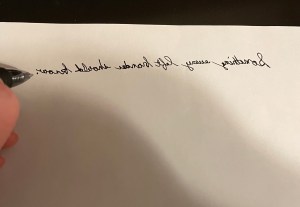 Something every left hander should know.